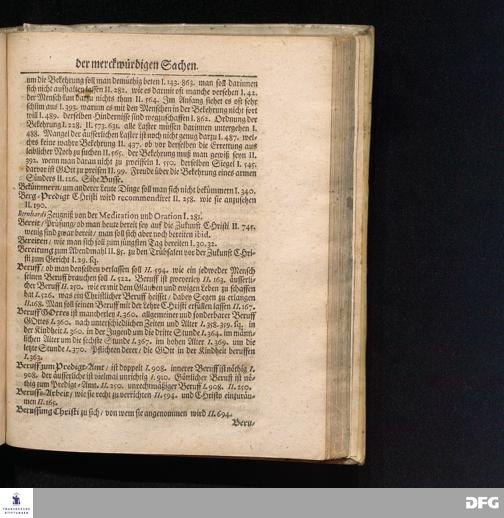 der merckwürdigen Sachen.
um die Bekehrung soll man demüthig beten I. 143. 863. man soll darinnen
sich nicht aufhalten lassen II. 282. wie es darmit oft manche versehen I. 42.
der Mensch kan darzu nichts thun II. 564. Im Anfang siehet es oft sehr
schlim aus I. 392. warum es mit den Menschen in der Bekehrung nicht fort
will I. 489. derselben Hindernisse sind wegzuschaffen I. 862. Ordnung der
Bekehrung I. 228. II. 573. 631. alle Laster müssen darinnen untergehen I.
488. Mangel der äusserlichen Laster ist noch nicht genug darzu I. 487. wel-
ches keine wahre Bekehrung II. 437. ob vor derselben die Errettung aus
leiblicher Noth zu suchen II. 565. der Bekehrung muß man gewiß seyn II.
392. wenn man daran nicht zu zweifeln I. 550. derselben Siegel I. 545.
davor ist GOtt zu preisen II. 99. Freude über die Bekehrung eines armen
Sünders II. 126. Sihe Busse.
Bekümmern, um anderer Leute Dinge soll man sich nicht bekümmern I. 340.
Berg-Predigt Christi wird recommendiret II. 258. wie sie anzusehen
II. 190.
Bernhardi Zeugniß von der Meditation und Oration I. 281.
Bereit / Prüfung, ob man heute bereit sey auf die Zukunft Christi II. 745.
wenig sind zwar bereit / man soll sich aber noch bereiten ibid.
Bereiten / wie man sich soll zum jüngsten Tag bereiten I. 30. 32.
Bereitung zum Abendmahl II. 85. zu den Trübsalen vor der Zukunft Chri-
sti zum Gericht I. 29. sq.
Beruff / ob man denselben verlassen soll II. 594. wie ein jedweder Mensch
seinen Beruff brauchen soll I. 522. Beruff ist zweyerley II. 163. äusserli-
cher Beruff II. 250. wie er mit dem Glauben und ewigen Leben zu schaffen
hat I. 526. was ein Christlicher Beruff heisset / dabey Segen zu erlangen
II. 168. Man soll seinen Beruff mit der Lehre Christi erfüllen lassen II. 167.
Beruff GOttes ist mancherley I. 360. allgemeiner und sonderbarer Beruff
GOttes I. 360. nach unterschiedlichen Zeiten und Alter I. 358. 359. sq. in
der Kindheit I. 360. in der Jugend um die dritte Stunde I. 364. im männ-
lichen Alter um die sechste Stunde I. 367. im hohen Alter I. 369. um die
letzte Stunde I. 370. Pflichten derer, die GOtt in der Kindheit beruffen
I. 363.
Beruff zum Predigt-Amt / ist doppelt I. 908. innerer Beruff ist nöthig I.
908. der äusserliche ist vielmal unrichtig I. 910. Göttlicher Beruff ist nö-
thig zum Predigt-Amt. II. 250. unrechtmäßiger Beruff I. 908. II. 250.
Beruffs-Arbeit / wie sie recht zu verrichten II. 594. und CHristo einzuräu-
men II. 165.
Beruffung Christi zu sich / von wem sie angenommen wird II. 694.
Beru-
FRANCKESCHE
STIFTUNGEN
DFG